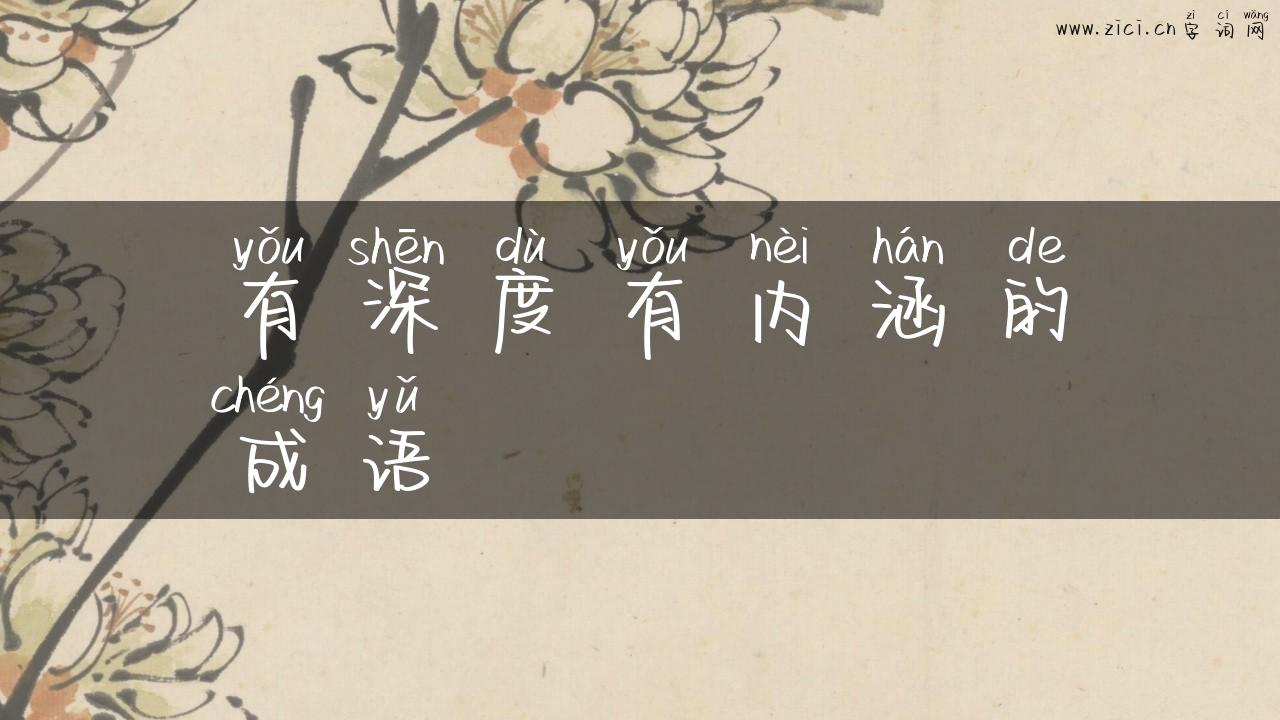 zì cí wǎng
www.zici.cn 字词网
yǒu shēn dù yǒu nèi hán de
有深度有内涵的
chéng yǔ
成语